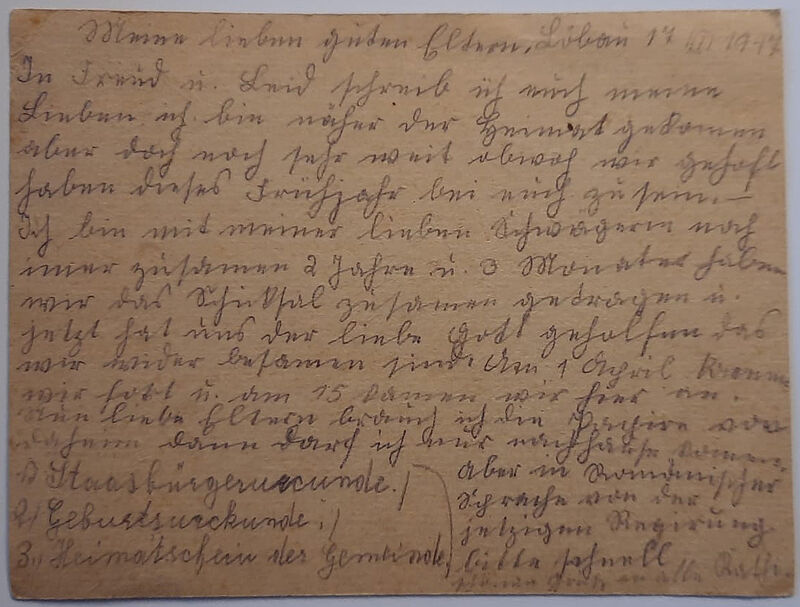 Meine lieben guten Eltern, Löbau 17 VII 1947
In Freud u. Leid schreib ich euch meine
Lieben ich bin näher der Heimat gekomen
aber doch noch sehr weit obwoh wir gehoft
haben dieses Frühjahr bei euch zu sein.—
Ich bin mit meiner lieben Schwägerin noch
imer zusamen 2 Jahre u. 3 Monate haben
wir das Schiksal zusamen getragen u.
jetzt hat uns der liebe Gott geholfen das
wir wider besamen sind. Am 1 April kamen
wir fort u. am 15 kamen wir hier an.
Nun liebe Eltern brauch ich die Papire von
daheim dann darf ich nur nachhause komen.
1) Staasbürgerurcunde./
2./ Geburtsurckunde./
3./ Heimatschein der Gemeinde,
aber in Romänischer
Sprache von der
jetzigen Regirung
bitte schnell
an alle Kathi.